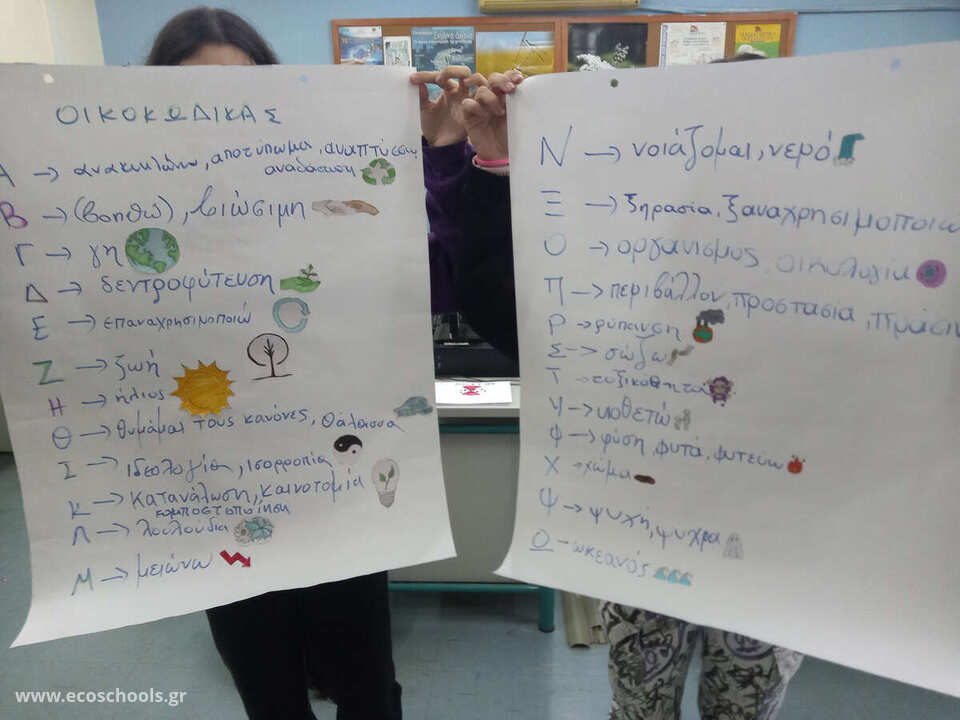 ΟΙΚΟΚΩΔΙΚΑΣ
Α → ανακυκλώνω, αποτύπωμα, ανάπτυξη,
αναδάσωση
Β → (βοηθώ), βιώσιμη
Γ → γη
Δ → δεντροφύτευση
Ε → επαναχρησιμοποιώ
Ζ → ζωή
Η → ήλιος
Θ → θυμάμαι τους κανόνες, θάλασσα
Ι → ιδεολογία, ισορροπία
Κ → κατανάλωση, καινοτομία
κομποστοποίηση
Λ → λουλούδια
Μ → μειώνω
Ν → νοιάζομαι, νερό
Ξ → ξηρασία, ξαναχρησιμοποιώ
Ο → οργανισμός, οικολογία
Π → περιβάλλον, προστασία, πράσιν
Ρ → ρύπανση
Σ → σώζω
Τ → τοξικότητα
Υ → υιοθετώ
Φ → φύση, φυτά, φυτεύω
Χ → χώμα
Ψ → ψυχή, ψυχρα
Ω → ωκεανός
www.ecoschools.gr